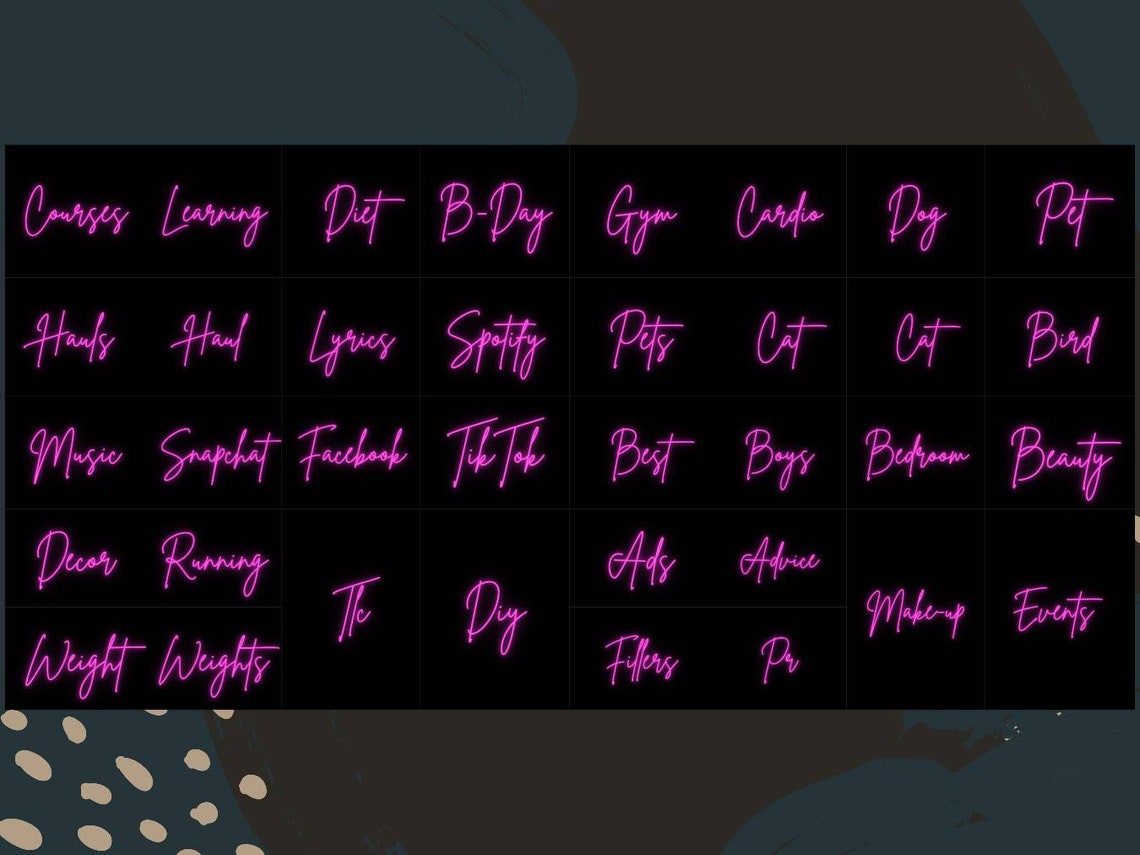 Courses Learning Diet B-Day Gym Cardio Dog Pet
Hauls Haul Lyrics Spotify Pets Cat Cat Bird
Music Snapchat Facebook TikTok Best Boys Bedroom Beauty
Decor Running Tlc Diy Ads Advice Make-up Events
Weight Weights Fillers Pr